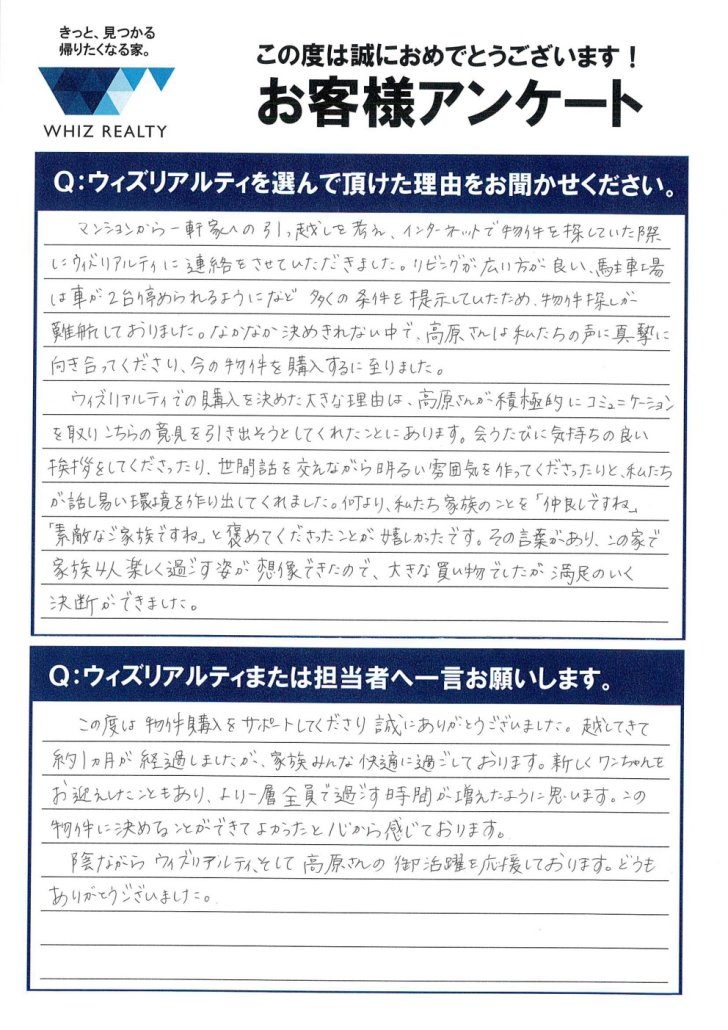 きっと、見つかる
帰りたくなる家。
WHIZ REALTY
この度は誠におめでとうございます！
お客様アンケート
Q：ウィズリアルティを選んで頂けた理由をお聞かせください。
マンションから一軒家への引っ越しを考え、インターネットで物件を探していた際
にウィズリアルティに連絡をさせていただきました。リビングが広い方が良い、駐車場
は車が2台停められるようになど 多くの条件を提示していたため、物件探しが
難航しておりました。なかなか決めきれない中で、高原さんは私たちの声に真摯に
向き合ってくださり、今の物件を購入するに至りました。
ウィズリアルティでの購入を決めた大きな理由は、高原さんが積極的にコミュニケーション
を取りこちらの意見を引き出そうとしてくれたことにあります。会うたびに気持ちの良い
挨拶をしてくださったり、世間話を交えながら明るい雰囲気を作ってくださったりと、私たち
が話し易い環境を作り出してくれました。何より、私たち家族のことを「仲良しですね」
「素敵なご家族ですね」と褒めてくださったことが嬉しかったです。その言葉があり、この家で
家族4人楽しく過ごす姿が想像できたので、大きな買い物でしたが満足のいく
決断ができました。
Q：ウィズリアルティまたは担当者へ一言お願いします。
この度は物件購入をサポートしてくださり誠にありがとうございました。越してきて
約1ヵ月が経過しましたが、家族みんな快適に過ごしております。新しくワンちゃんを
お迎えしたこともあり、より一層全員で過ごす時間が増えたように思います。この
物件に決めることができてよかったと心から感じております。
陰ながらウィズリアルティ、そして高原さんの御活躍を応援しております。どうも
ありがとうございました。